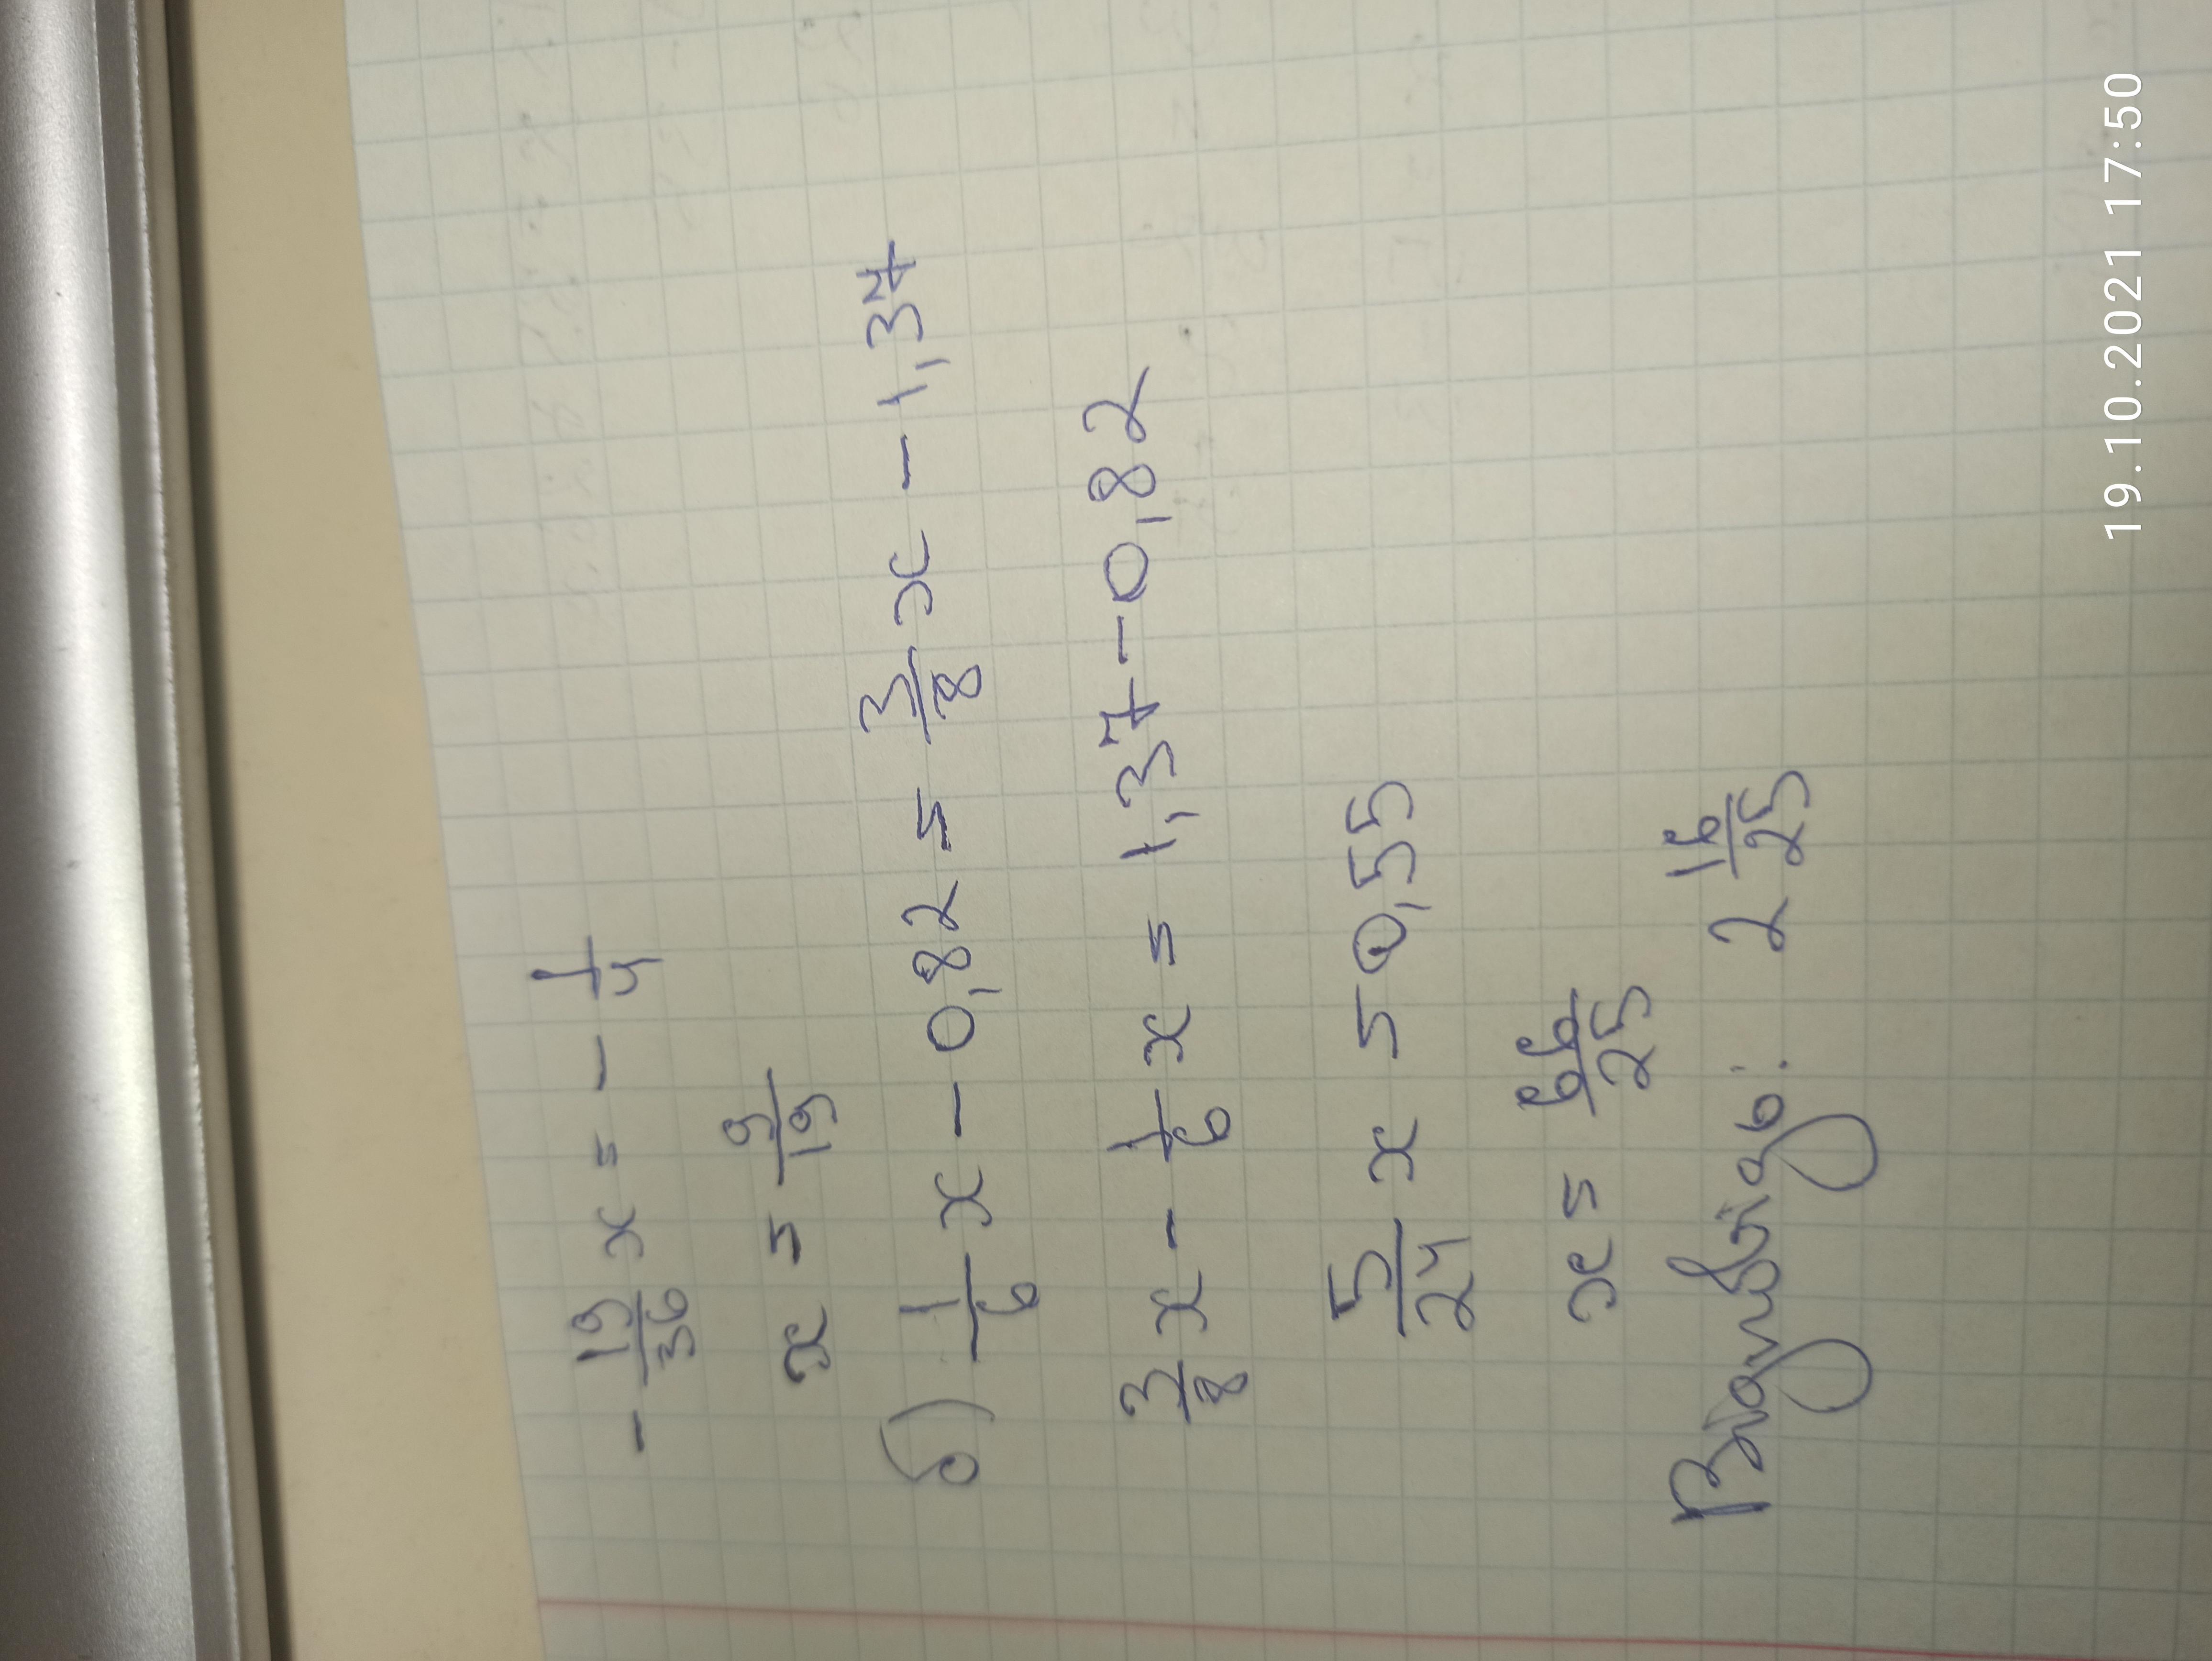 - 19/36 x = - 1/4
x = 9/19
б) 1/6 x - 0,82 = 3/8 x - 1,37
3/8 x - 1/6 x = 1,37 - 0,82
5/24 x = 0,55
x = 66/25
Відповідь: 2 16/25
19.10.2021 17:50